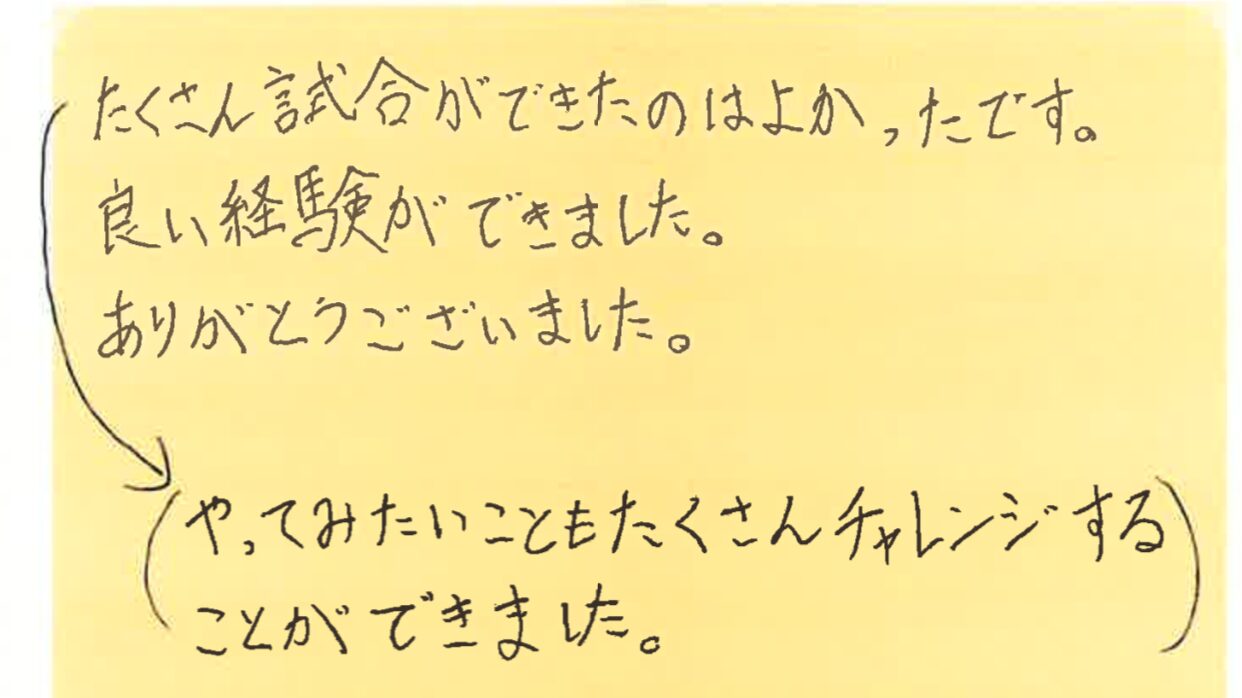 たくさん試合ができたのはよかったです。
良い経験ができました。
ありがとうございました。
(やってみたいこともたくさんチャレンジする
ことができました。)